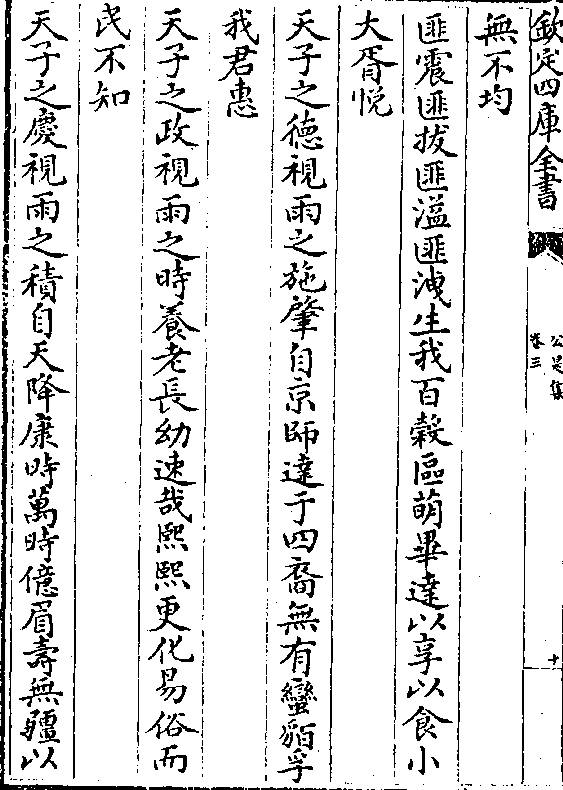 欽定四庫全書
公是集
卷三
十
無不均
匪震匪拔匪溢匪洩生我百穀區萌畢達以享以食小
大胥悦
天子之德視雨之施肇自京師達于四裔無有蠻貊孚
我君惠
天子之政視雨之時養老長幼速哉熙熙更化易俗而
民不知
天子之慶視雨之積自天降康時萬時億眉壽無疆以